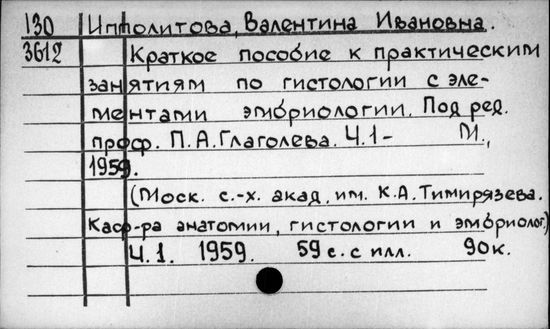 130 Ипполитова, Валентина Ивановна.
3612 Краткое пособие к практическим
занятиям по гистологии с эле-
ментами эмбриологии. Под ред.
проф. П.А.Глаголева. Ч.1- М.,
1959.
(Моск. с.-х. акад. им. К.А.Тимирязева.
Каф-ра анатомии, гистологии и эмбриолог.)
Ч.1. 1959. 59 с. с илл. 90к.